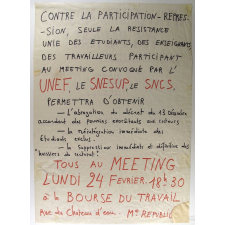 CONTRE LA PARTICIPATION - REPRES-
-SION, SEULE LA RESISTANCE
UNIE DES ETUDIANTS, DES ENSEIGNANTS,
DES TRAVAILLEURS PARTICIPANT
AU MEETING CONVOQUÉ PAR L'
UNEF, LE SNESUP, LE SNCS,
PERMETTRA D'OBTENIR
— L'abrogation du décret du 13 Décembre
accordant des pouvoirs exorbitants aux recteurs
— la réintégration immédiate des
Etudiants exclus.
— la suppression immédiate et définitive des
"huissiers du rectorat".
TOUS AU MEETING
LUNDI 24 FEVRIER. 18h 30
à la BOURSE DU TRAVAIL
Rue du Chateau d'eau. Mo REPUBLIC